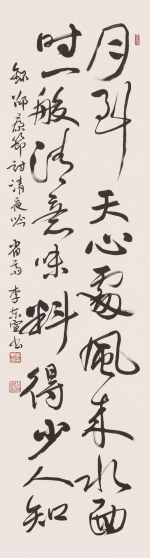 月到天心處風來水面
時一般清意味料得少人知
錄邵康節詩清夜吟 李東書